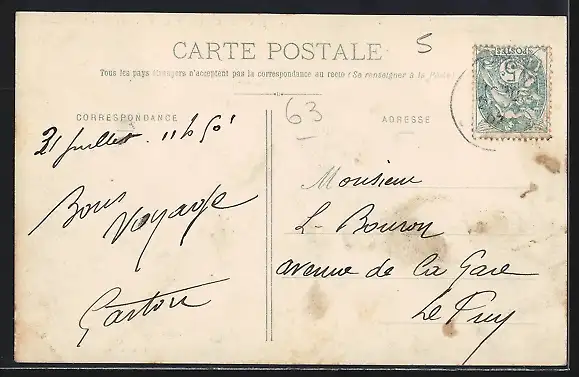 CARTE POSTALE
5
Tous les pays étrangers n'acceptent pas la correspondance au recto (Se renseigner à la Poste)
63
CORRESPONDANCE
ADRESSE
21 Juillet. 11h 50'
Bons
Voyage
Gaston
Monsieur
L. Bouron
avenue de la Gare
Le Puy
POSTES
07